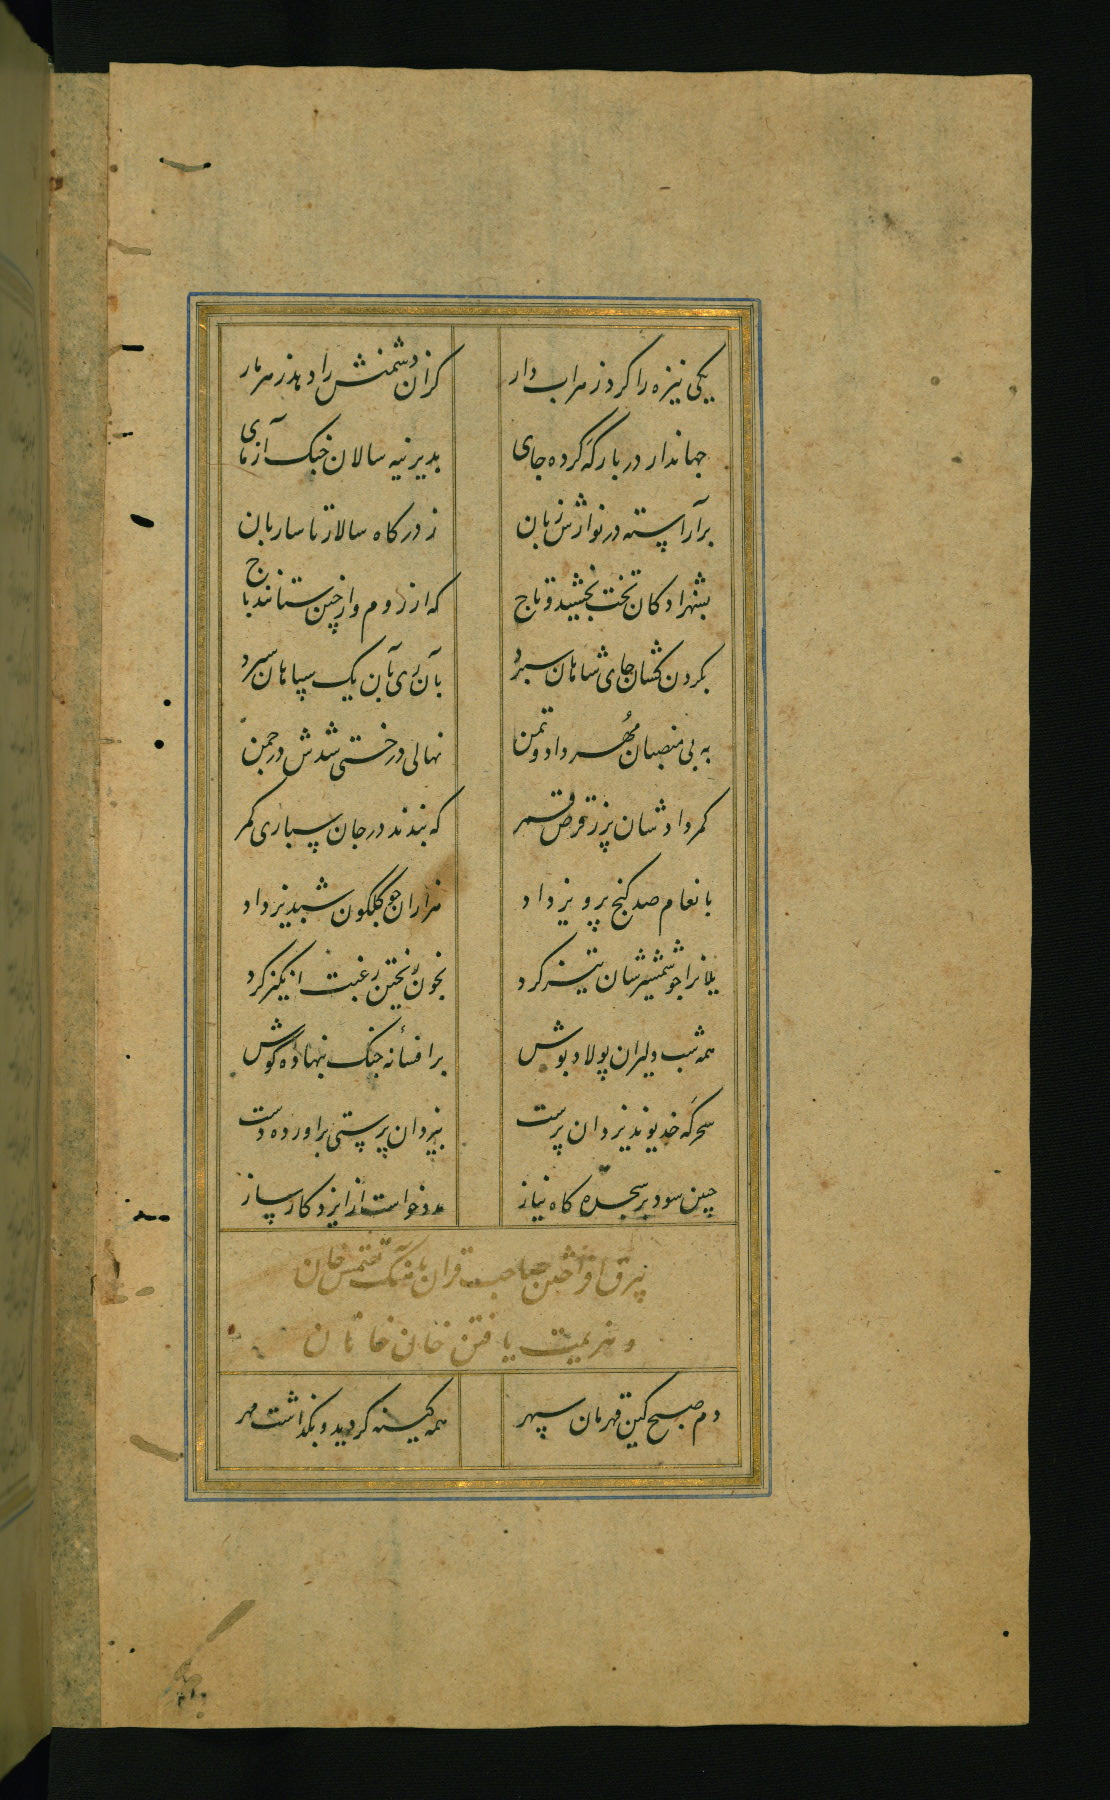 یکی نیزه را کرد زهراب دار
کزان دشمنش را دهد زهر مار
جهاندار در بارگه کرده جای
بدیرنیه سالان جنک آزمای
برآراسته در نوازش زبان
ز درکاه سالار تا ساربان
بشهزادکان تخت بخشید و تاج
که از روم و از چین ستانند باج
بکردن کشان جای شاهان سپرد
بآن ری بآن یک سپاهان سپرد
به بی منصبان مُهر داد و تمن
نهالی درختی شدش در چمن
کمر دادشان پر ز قرص قمر
که بندند در جان سپاری کمر
بانعام صد کنج پرویز داد
هزاران چو گلگون شبدیز داد
یلانرا چو شمشیرشان تیز کرد
بخون ریختن رغبت انکیز کرد
همه شب دلیران پولاد پوش
بر افسانه جنک بنهاده گوش
سحرگه خدیو یزدان پرست
بیزدان پرستی براورده دست
جبین سود بر سجده کاه نیاز
مدد خواست از ایزد کارساز
بیرق افراختن صاحب قران بجنک تقتمش خان
و هزیمت یافتن خان خانان
دم صبح کین قهرمان سپهر
همه کینه کردید و بکذاشت مهر